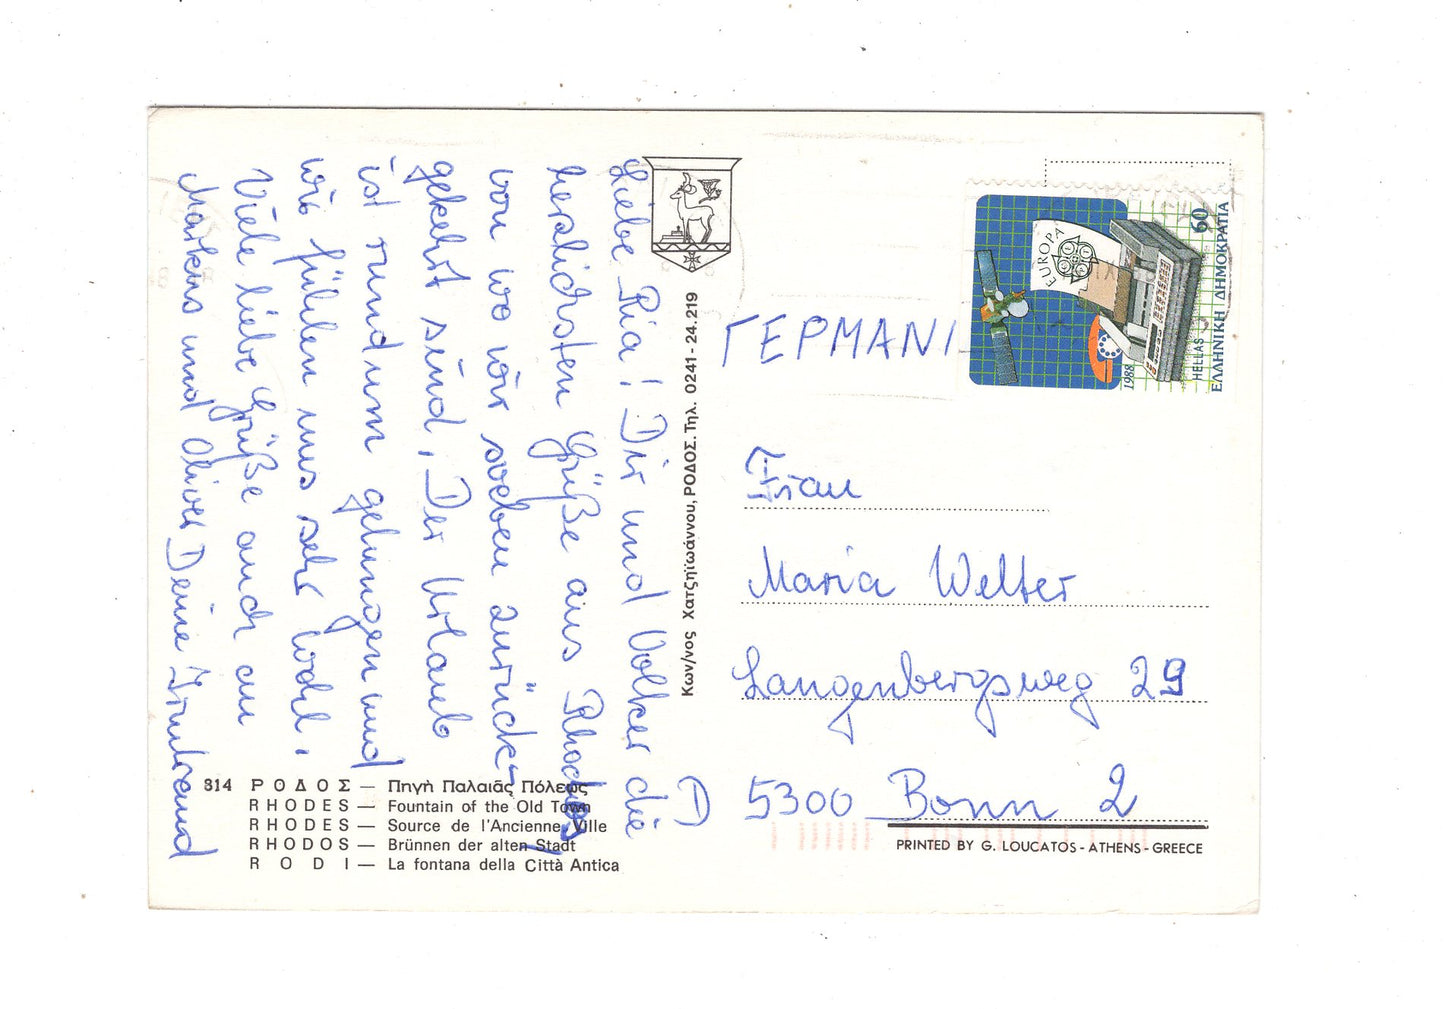 Liebe Ria! Dir und Volker die
herzlichsten Grüße aus Rhodos,
von wo wir soeben zurück-
gekehrt sind. Der Urlaub
ist rundum gelungen und
wir fühlen uns sehr wohl.
Viele liebe Grüße auch an
Markus und Oliver Deine Irmtraud
Κων/νος Χατζηϊωάννου, ΡΟΔΟΣ. Τηλ. 0241 - 24.219
EUROPA
1988
HELLAS
60
ΕΛΛΗΝΙΚΗ ΔΗΜΟΚΡΑΤΙΑ
ΓΕΡΜΑΝΙ
Frau
Maria Welter
Langenbergsweg 29
D 5300 Bonn 2
814 ΡΟΔΟΣ — Πηγὴ Παλαιᾶς Πόλεως
RHODES — Fountain of the Old Town
RHODES — Source de l'Ancienne Ville
RHODOS — Brünnen der alten Stadt
RODI — La fontana della Città Antica
PRINTED BY G. LOUCATOS - ATHENS - GREECE